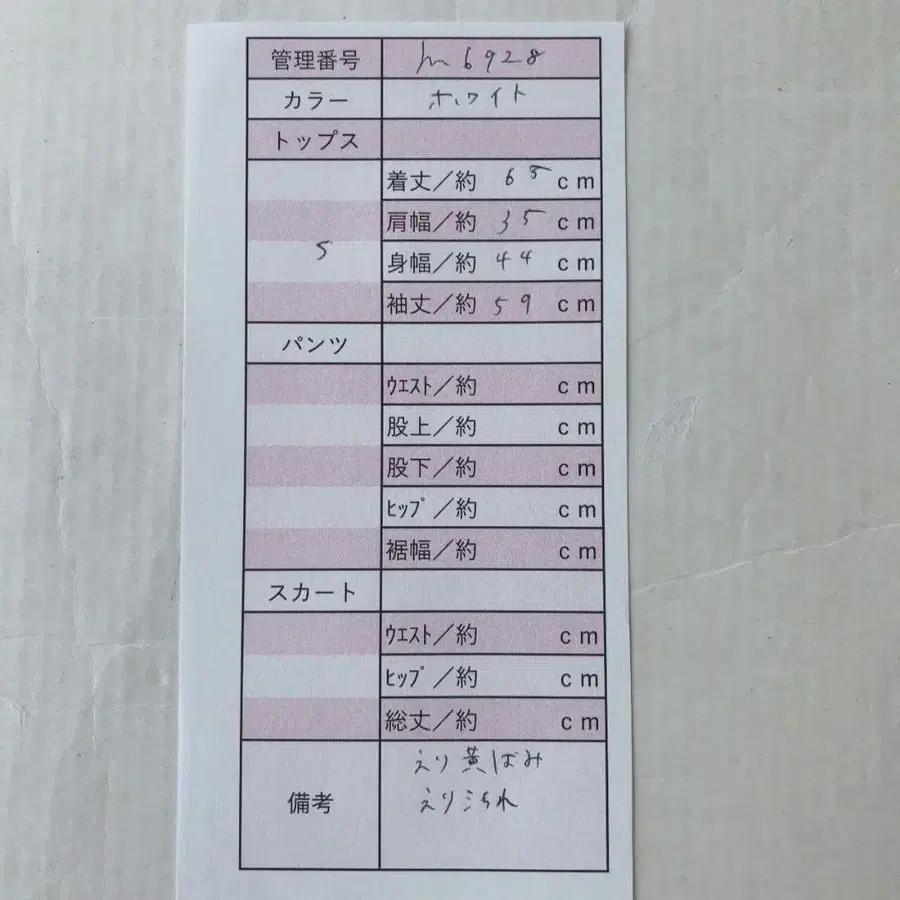 管理番号 m6928
カラー ホワイト
トップス
着丈／約 65 cm
肩幅／約 35 cm
S
身幅／約 44 cm
袖丈／約 59 cm
パンツ
ｳｴｽﾄ／約 cm
股上／約 cm
股下／約 cm
ﾋｯﾌﾟ／約 cm
裾幅／約 cm
スカート
ｳｴｽﾄ／約 cm
ﾋｯﾌﾟ／約 cm
総丈／約 cm
えり黄ばみ
備考 えり汚れ